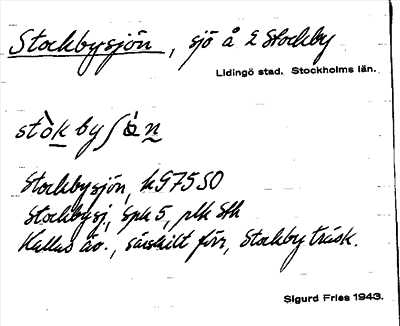 Stockbysjön, sjö å Stockby
Lidingö stad. Stockholms län.
stòkbyʃö̀n
Stockbysjön, k 97 SO
Stockbysj, Spk 5, plk Sth
Kallas äv., särskilt förr, Stockby träsk.
Sigurd Fries 1943.